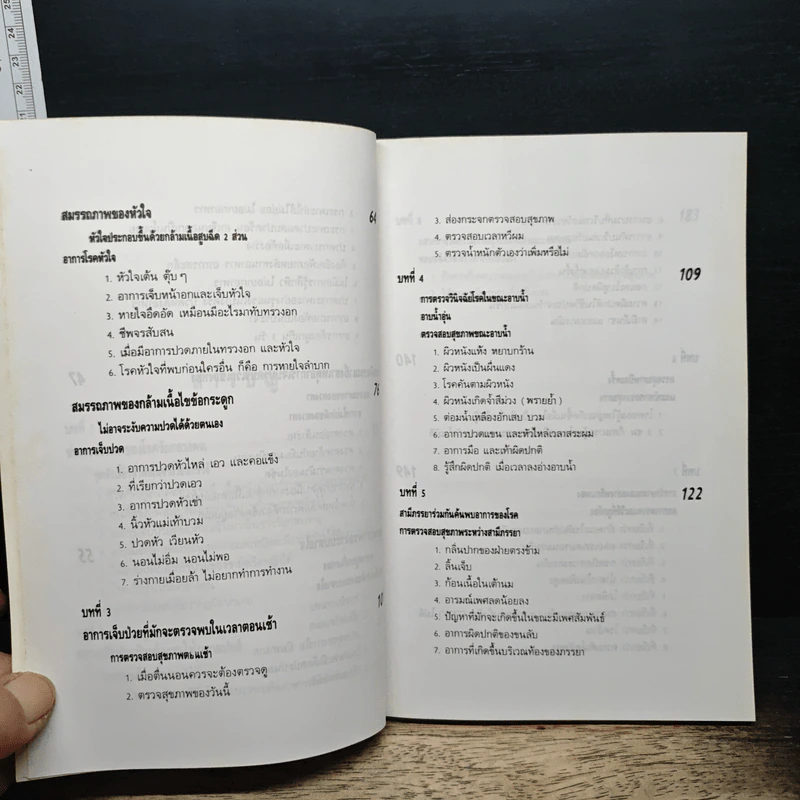 สมรรถภาพของหัวใจ 64
หัวใจประกอบขึ้นด้วยกล้ามเนื้อสูบฉีด 2 ส่วน
อาการโรคหัวใจ
1. หัวใจเต้น ตุ๊บๆ
2. อาการเจ็บหน้าอกและเจ็บหัวใจ
3. หายใจอึดอัด เหมือนมีอะไรมาทับทรวงอก
4. ชีพจรสับสน
5. เมื่อมีอาการปวดภายในทรวงอก และหัวใจ
6. โรคหัวใจที่พบก่อนใครอื่น ก็คือ การหายใจลำบาก
สมรรถภาพของกล้ามเนื้อไขข้อกระดูก 76
ไม่อาจระงับความปวดได้ด้วยตนเอง
อาการเจ็บปวด
1. อาการปวดหัวไหล่ เอว และคอแข็ง
2. ที่เรียกว่าปวดเอว
3. อาการปวดหัวเข่า
4. นิ้วหัวแม่เท้าบวม
5. ปวดหัว เวียนหัว
6. นอนไม่อิ่ม นอนไม่พอ
7. ร่างกายเมื่อยล้า ไม่อยากทำการทำงาน
บทที่ 3 10
อาการเจ็บป่วยที่มักจะตรวจพบในเวลาตอนเช้า
การตรวจสอบสุขภาพตอนเช้า
1. เมื่อตื่นนอนควรจะต้องตรวจดู
2. ตรวจสุขภาพของวันนี้
3. ส่องกระจกตรวจสอบสุขภาพ
4. ตรวจสอบเวลาหวีผม
5. ตรวจน้ำหนักตัวเองว่าเพิ่มหรือไม่
บทที่ 4 109
การตรวจวินิจฉัยโรคในขณะอาบน้ำ
อาบน้ำอุ่น
ตรวจสอบสุขภาพขณะอาบน้ำ
1. ผิวหนังแห้ง หยาบกร้าน
2. ผิวหนังเป็นผื่นแดง
3. โรคคันตามผิวหนัง
4. ผิวหนังเกิดจ้ำสีม่วง ( พรายย้ำ )
5. ต่อมน้ำเหลืองอักเสบ บวม
6. อาการปวดแขน และหัวไหล่เวลาสระผม
7. อาการมือ และเท้าผิดปกติ
8. รู้สึกผิดปกติ เมื่อเวลาลงอ่างอาบน้ำ
บทที่ 5 122
สามีภรรยาร่วมกันค้นพบอาการของโรค
การตรวจสอบสุขภาพระหว่างสามีภรรยา
1. กลิ่นปากของฝ่ายตรงข้าม
2. ลิ้นเจ็บ
3. ก้อนเนื้อในเต้านม
4. อารมณ์เพศลดน้อยลง
5. ปัญหาที่มักจะเกิดขึ้นในขณะมีเพศสัมพันธ์
6. อาการผิดปกติของขนลับ
7. อาการที่เกิดขึ้นบริเวณท้องของภรรยา